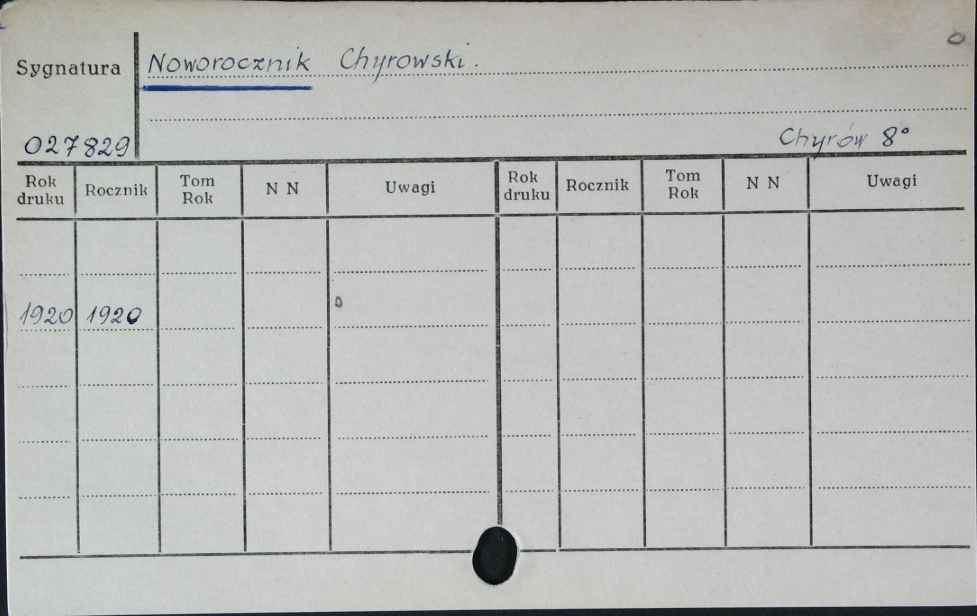 0
Sygnatura
Noworocznik Chyrowski.
027829
Chyrów 8°
Rok druku Rocznik Tom Rok N N Uwagi Rok druku Rocznik Tom Rok N N Uwagi
1920 1920 0